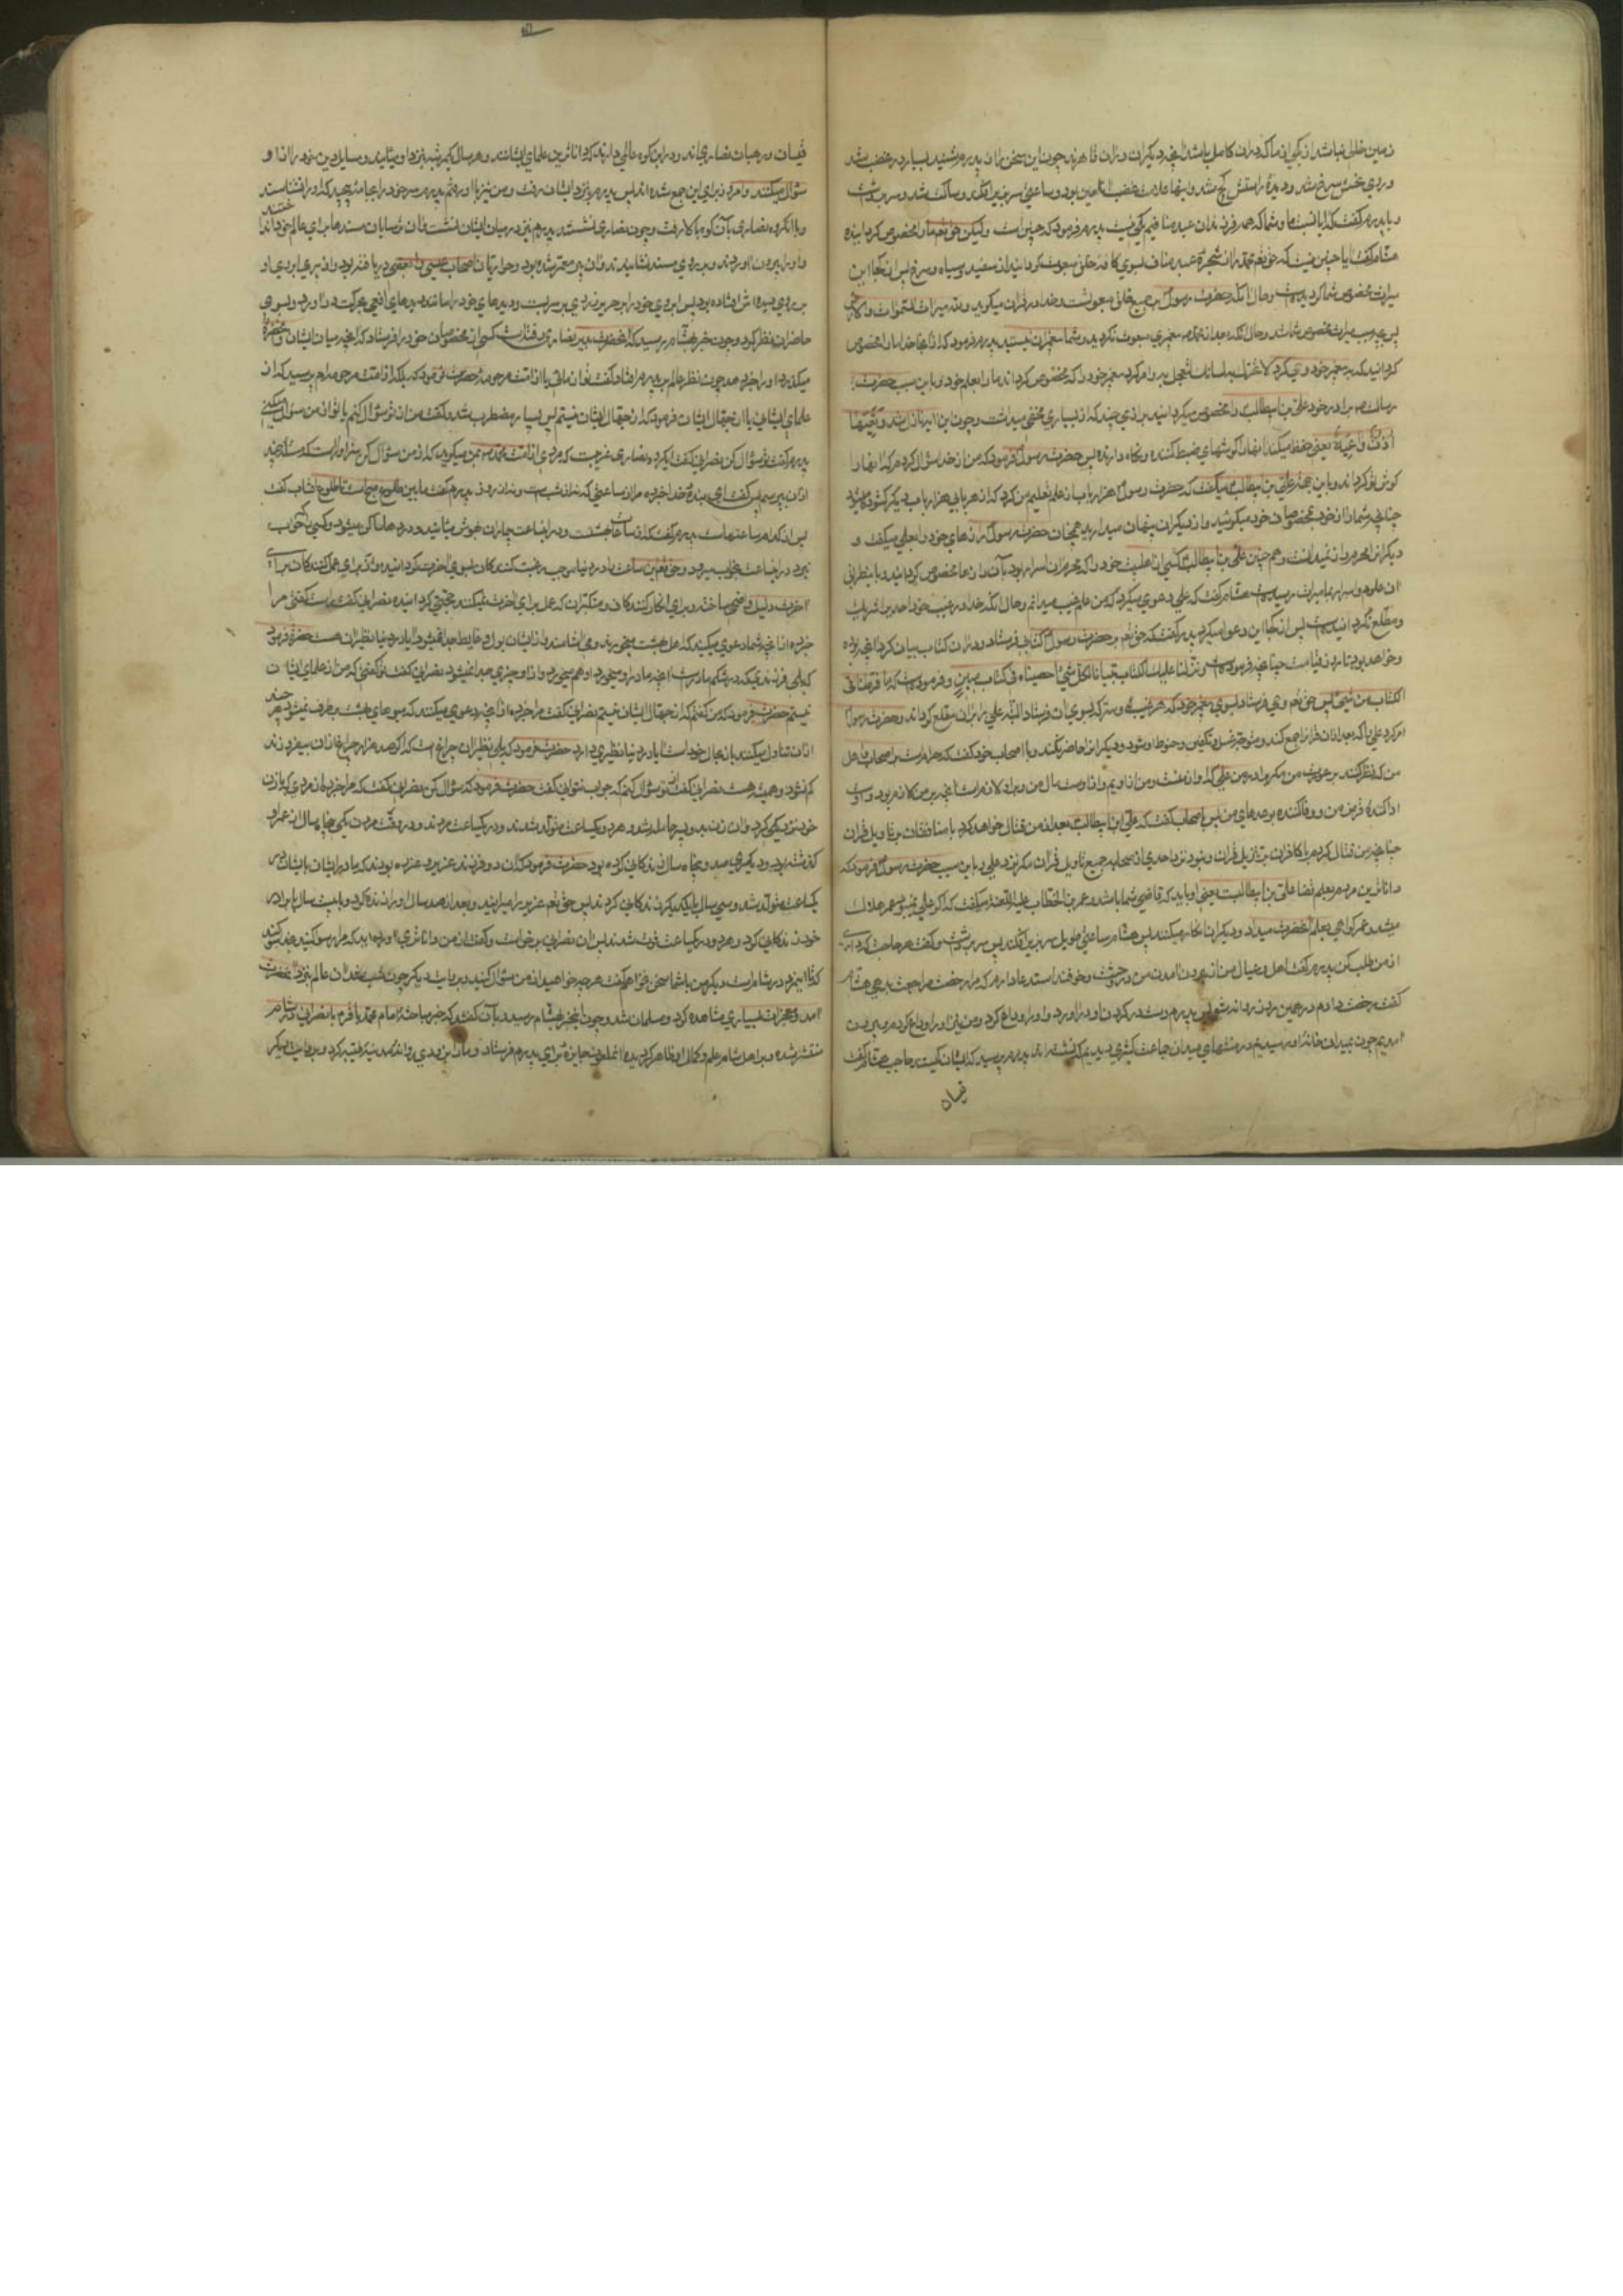 زمین خالی نباشد از یکی از ما که دران کامل باشد آنچه دیگران دران قاصرند چون این سخن را از پدرم شنید بسیار در غضب شد
و روی نحسش سرخ شد و دیده راستش کج شد و اینها علامت غضب آن لعین بود و ساعتی سر بزیر افکند و ساکت شد و سر برداشت
و با پدرم گفت که ایا نسب ما و شما که همه فرزندان عبد منافیم یکی نیست پدرم فرمود که چنین است ولیکن حق تعم ما را مخصوص گردانیده
هشام گفت ایا چنین نیست که حق تعم محمد را از شجره عبد مناف بسوی کافه خلق مبعوث گردانید از سفید و سیاه و سرخ پس از کجا این
میراث مخصوص شما گردیده است و حال آنکه حضرت رسول بر همه خلق مبعوث است و خدا در قران میگوید و لله میراث السموات والارض
پس بچه سبب میراث علم مخصوص شما شد و حال آنکه بعد از محمد پیغمبری مبعوث نگردید و شما پیغمبران نیستید پدرم فرمود که از انجا خدا ما را مخصوص
گردانید که به پیغمبر خود وحی کرد لا تحرک به لسانک لتعجل به و امر کرد پیغمبر خود را که مخصوص گرداند ما را بعلم خود و باین سبب حضرت
رسالت برادر خود علی بن ابیطالب را مخصوص میگردانید برازی چند که از بسیاری مخفی میداشت و چون این ایه نازل شد و تعیها
اذن واعیة یعنی حفظ میکند انها را گوشهای ضبط کننده و نگاه دارنده پس حضرت رسول فرمود که من از خدا سؤال کردم که انها را
گوش تو گرداند و باین جهة علی بن ابیطالب میگفت که حضرت رسول هزار باب از علم تعلیم من کرد که از هر بابی هزار باب دیگر گشوده شد
چنانچه شما رازهای خود بمخصوصان خود میگوئید و از دیگران پنهان میدارید همچنان حضرت رسول رازهای خود را بعلی میگفت و
دیگران را محرم ان نمیدانست و همچنین علی بن ابیطالب کسی از اهلبیت خود را که محرم ان اسرار بود بآن رازها مخصوص گردانید و باینطریق
ان علوم و اسرار بما میراث رسیده است هشام گفت که علی دعوی میکرد که من علم غیب میدانم و حال آنکه خدا در غیب خود احدیرا شریک
و مطلع نگردانیده است پس از کجا این دعوا میکرد پدرم گفت که حق تعم بر حضرت رسول کتابی فرستاد و در ان کتاب بیان کرد آنچه بوده
و خواهد بود تا روز قیامت چنانچه فرموده است و نزلنا علیک الکتاب تبیانا لکل شیئ احصیناه فی کتاب مبین و فرموده است که ما فرطنا فی
الکتاب من شیئ پس حق تعم وحی فرستاد بسوی پیغمبر خود که هر غیب و سر که بسوی ان فرستاد البته علی را بران مطلع گرداند و حضرت رسول
امر کرد علی را که بعد از ان قران را جمع کند و متوجه غسل و تکفین و حنوط او شود و دیگران را حاضر نکند و با اصحاب خود گفت که حرام است بر اصحاب و اهل
من که نظر کنند بر عورت من مگر برادر من علی که او از منست و من از اویم و از اوست مال من و بر او لازم است آنچه بر من لازم بود و اوست
ادا کننده قرض من و وفا کننده بوعدهای من پس با اصحاب گفت که علی ابن ابیطالب بعد از من قتال خواهد کرد با منافقان بر تاویل قران
چنانچه من قتال کردم با کافران بر تنزیل قران و نبود نزد احدی از صحابه جمیع تاویل قران مگر نزد علی و باین سبب حضرت رسول فرمود که
داناترین مردم بعلم قضا علی بن ابیطالبست یعنی او باید که قاضی شما باشد و عمر بن الخطاب میگفت که اگر علی نمیبود عمر هلاک
میشد و عمر گواهی بعلم آنحضرت میداد و دیگران انکار میکنند پس هشام ساعتی طویل سر بزیر افکند پس سر برداشت و گفت هر حاجت که داری
از من طلب کن پدرم گفت اهل و عیال من از بیرون امدن من در وحشت و خوفند استدعا دارم که مرا رخصت مراجعت بدهی هشام
گفت رخصت دادم در همین روز روانه شو پس پدرم دست در گردن او دراورد و او را وداع کرد و من نیز او را وداع کردم و بیرون
آمدیم چون بمیدان خانه او رسیدیم در منتهای میدان جماعت کثیری دیدیم که نشسته اند پدرم پرسید که ایشان کیستند حاجب هشام گفت
قیسان
قسیسان و رهبانان نصاری اند و در این کوه عالمی دارند که داناترین علمای ایشانست و هر سال یکمرتبه بنزد او میایند و مسایل دین خود را از او
سؤال میکنند و امروز برای این جمع شده اند پس پدرم بنزد ایشان رفت و من نیز با او رفتم پدرم سر خود را بجامه پیچید که او را نشناسند
و با انگروه نصاری بآن کوه بالا رفت و چون نصاری نشستند پدرم نیز در میان ایشان نشست و ان ترسایان مسندها برای عالم خود انداختند
و او را بیرون اوردند و بر روی مسند نشاندند و ان پیر معمر شده بود و حواریان اصحاب عیسی را بعضی دریافته بود و از پیری ابروی او
بر روی دیده اش افتاده بود پس ابروی خود را بحریر زردی بر سر بست و دیدهای خود را مانند دیدهای افعی بحرکت دراورد و بسوی
حاضران نظر کرد و چون خبر بهشام رسید که آنحضرت بدیر نصاری رفته است کسی از مخصوصان خود را فرستاد که آنچه میان ایشان و حضرت
میگذرد او را خبر دهد چون نظر عالم بر پدرم افتاد گفت تو از مائی یا از امت مرحومه حضرت فرمود که بلکه از امت مرحومه ام پرسید که از
علمای ایشانی یا از جهال ایشان فرمود که از جهال ایشان نیستم پس بسیار مضطرب شد و گفت من از تو سؤال کنم یا تو از من سؤال میکنی
پدرم گفت تو سؤال کن نصرانی گفت ای گروه نصاری غریبست که مردی از امت محمد بمن میگوید که از من سؤال کن سزاوار است که مسئله چند
از ان بپرسم پس گفت ای بنده خدا خبر ده مرا از ساعتی که نه از شب است و نه از روز پدرم گفت مابین طلوع صبح است تا طلوع افتاب گفت
پس از کدام ساعتهاست پدرم گفت که از ساعات بهشتست و در این ساعت بیماران بهوش میایند و دردها ساکن میشود و کسی را که خواب
نبرد در این ساعت بخواب میرود و حق تعم این ساعت را در دنیا موجب رغبت رغبت کنندکان بسوی آخرت گردانیده و از برای عمل کنندکان برای
آخرت دلیل واضحی ساخته و برای انکار کنندکان و متکبران که عمل برای آخرت نمیکنند حجتی گردانیده نصرانی گفت راست گفتی مرا
خبر ده از آنچه شما دعوی میکنید که اهل بهشت میخورند و میاشامند و از ایشان بول و غایط جدا نمیشود ایا در دنیا نظیر ان هست حضرت فرمود
که بلی فرزندی که در شکم مادر است آنچه مادر او میخورد او هم میخورد و از او چیزی جدا نمیشود نصرانی گفت تو نگفتی که من از علمای ایشان
نیستم حضرت فرمود که من گفتم که از جهال ایشان نیستم نصرانی گفت مرا خبر ده از آنچه دعوی میکنند که میوهای بهشت برطرف نمیشود هر چند
از ان تناول میکنند باز بحال خود است ایا در دنیا نظیری دارد حضرت فرمود که بلی نظیر ان چراغ است که اگر صد هزار چراغ از ان بیفروزند
کم نشود و همیشه هست نصرانی گفت از تو سؤال کنم که جواب نتوانی گفت حضرت فرمود که سؤال کن نصرانی گفت که مرا خبر ده از مردی که با زن
خود نزدیکی کرد و ان زن بدو پسر حامله شد و هر دو در یکساعت متولد شدند و در یکساعت مردند و در وقت مردن یکی پنجاه سال از عمر او
گذشته بود و دیگری صد و پنجاه سال زندکانی کرده بود حضرت فرمود که ان دو فرزند عزیر و عزره بودند که مادر ایشان بایشان در
یکساعت متولد شد و سی سال با یکدیگر زندکانی کردند پس حق تعم عزیر را میرانید و بعد از صد سال او را زنده کرد و بیست سال با برادر
خود زندکانی کرد و هر دو در یکساعت فوت شدند پس ان نصرانی برخواست و گفت از من داناتری آورده اید که مرا رسوا کنید بخدا سوگند
که تا این مرد در شام است دیگر من با شما سخن نخواهم گفت هر چه خواهید از من سؤال کنید و بروایت دیگر چون شب شد ان عالم بنزد آنحضرت
آمد و معجزات بسیاری مشاهده کرد و مسلمان شد و چون اینخبر بهشام رسید و بآن گفتند که خبر مباحثه امام محمد باقر با نصرانی در شام
منتشر شده و بر اهل شام علم و کمال او ظاهر گردیده آنملعون جایزه برای پدرم فرستاد و ما را بزودی روانه مدینه طیبه کرد و بروایت دیگر